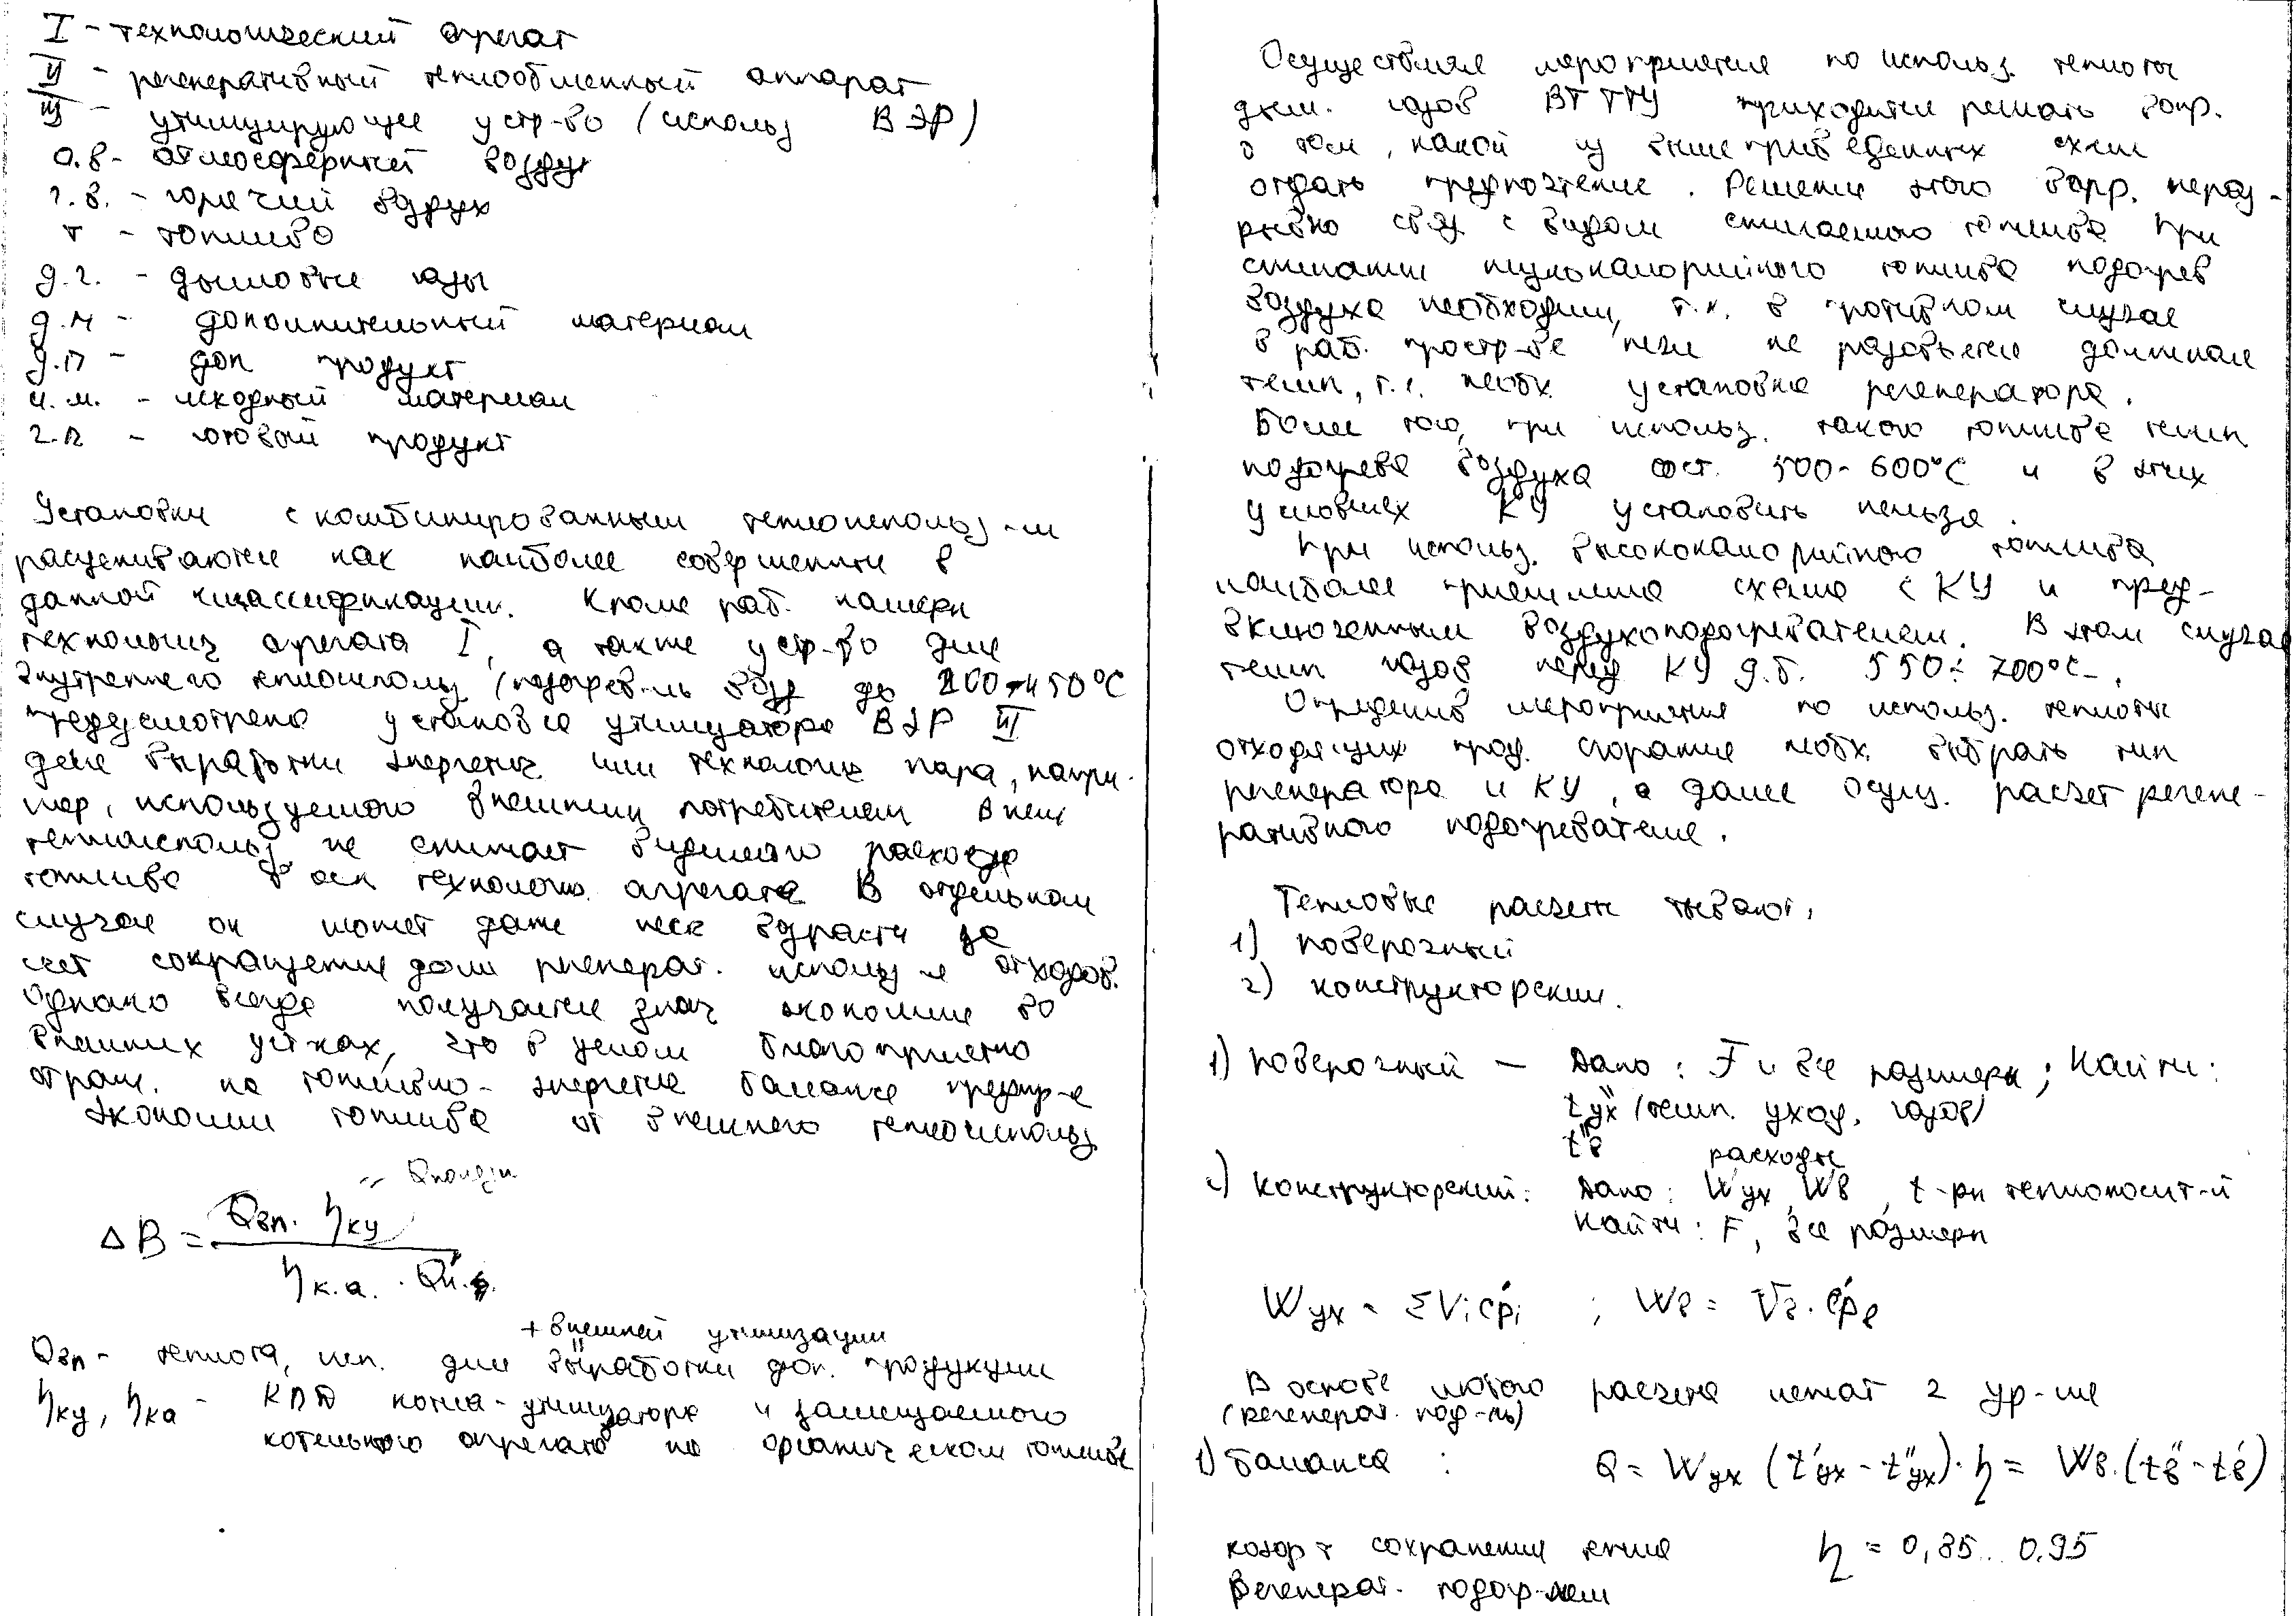 I - технологический агрегат
II - регенеративный теплообменный аппарат
III - утилизирующее устр-во (использ ВЭР)
а.в - атмосферный воздух
г.в. - горячий воздух
т - топливо
д.г. - дымовые газы
д.м - дополнительный материал
д.п - доп продукт
и.м. - исходный материал
г.п - готовый продукт
Установки с комбинированным теплоиспольз-м
расцениваются как наиболее совершенные в
данной классификации. Кроме раб. камеры
технологич агрегата I, а также устр-во для
внутреннего теплоиспольз (подогрев-ль возд до 200÷450°С
предусмотрена установка утилизатора ВЭР III
для выработки энергетич или технологич пара, напри-
мер, используемого внешним потребителем Внеш
теплоиспольз. не снижает видимого расхода
топлива в осн технологич. агрегата В отдельном
случае он может даже неск возрасти за
счет сокращения доли регенерат. использ-я отходов.
Однако всегда получается знач экономия во
внешних уст-ках, что в целом благоприятно
отраж. на топливно-энергетич балансе предпр-я
Экономия топлива от внешнего теплоиспольз.
ΔB = Qвп. ηку / ηк.а. · Qн.р.
+ внешней утилизации
Qвп - теплота, исп. для выработки доп. продукции
ηку, ηка - КПД котла-утилизатора и замещаемого
котельного агрегата на органическом топливе
Осуществляя мероприятия по использ. теплоты
дым. газов ВТ ТТУ приходится решать вопр.
о том, какой из вышеприведенных схем
отдать предпочтение. Решение этого вопр. нераз-
рывно связ с видом сжигаемого топлива При
сжигании низкокалорийного топлива подогрев
воздуха необходим, т.к. в противном случае
в раб. простр-ве печи не разовьется должная
темп, т.е. необх установка регенератора.
Более того, при использ. такого топлива темп
подогрева воздуха сост. 500-600°С и в этих
условиях КУ установить нельзя.
При использ. высококалорийного топлива
наиболее приемлема схема с КУ и пред-
включенным воздухоподогревателем. В этом случае
темп газов перед КУ д.б. 550÷700°С.
Определив мероприятия по использ. теплоты
отходящих прод. сгорания необх. выбрать тип
регенератора и КУ, а далее осущ. расчет регене-
ративного подогревателя.
Тепловые расчеты бывают:
1) поверочный
2) конструкторский.
1) Поверочный — Дано: F и все размеры; Найти:
t"ух (темп. уход. газов)
t"в
расходы
2) Конструкторский: Дано: Wух, Wв, t-ры теплоносит-й
Найти: F, все размеры
Wух = ΣViC'pi ; Wв = Vв · C'pв
В основе любого расчета лежат 2 ур-ия
(регенерат. под-ль)
1) Баланса : Q = Wух (t'ух - t"ух) · η = Wв · (t"в - t'в)
коэф-т сохранения тепла η = 0,85...0,95
регенерат. подогр-лем